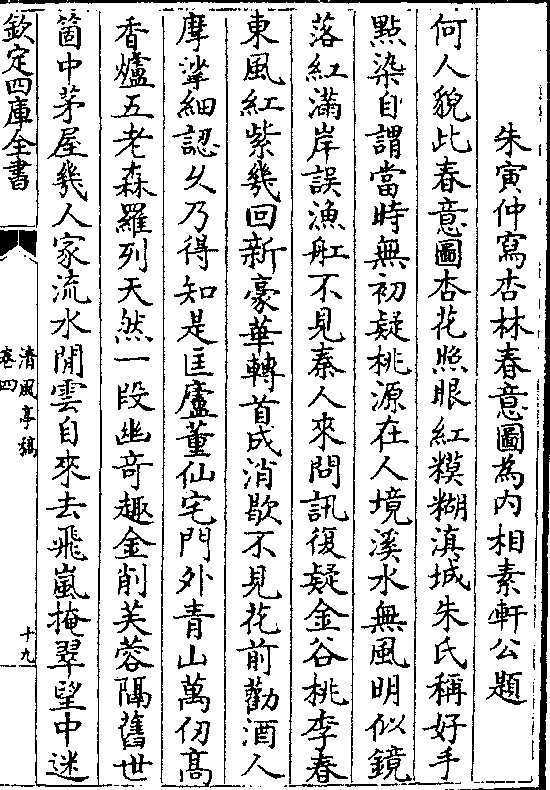 朱寅仲寫杏林春意圖為內相素軒公題
何人貌此春意圖杏花照眼紅糢糊滇城朱氏稱好手
點染自謂當時無初疑桃源在人境溪水無風明似鏡
落紅滿岸誤漁舡不見秦人來問訊復疑金谷桃李春
東風紅紫幾回新豪華轉首成消歇不見花前勸酒人
摩挲細認久乃得知是匡廬董仙宅門外青山萬仞高
香爐五老森羅列天然一段幽奇趣金削芙蓉隔舊世
箇中茅屋幾人家流水閒雲自來去飛嵐掩翠望中迷
欽定四庫全書
清風亭稿
卷四
十九